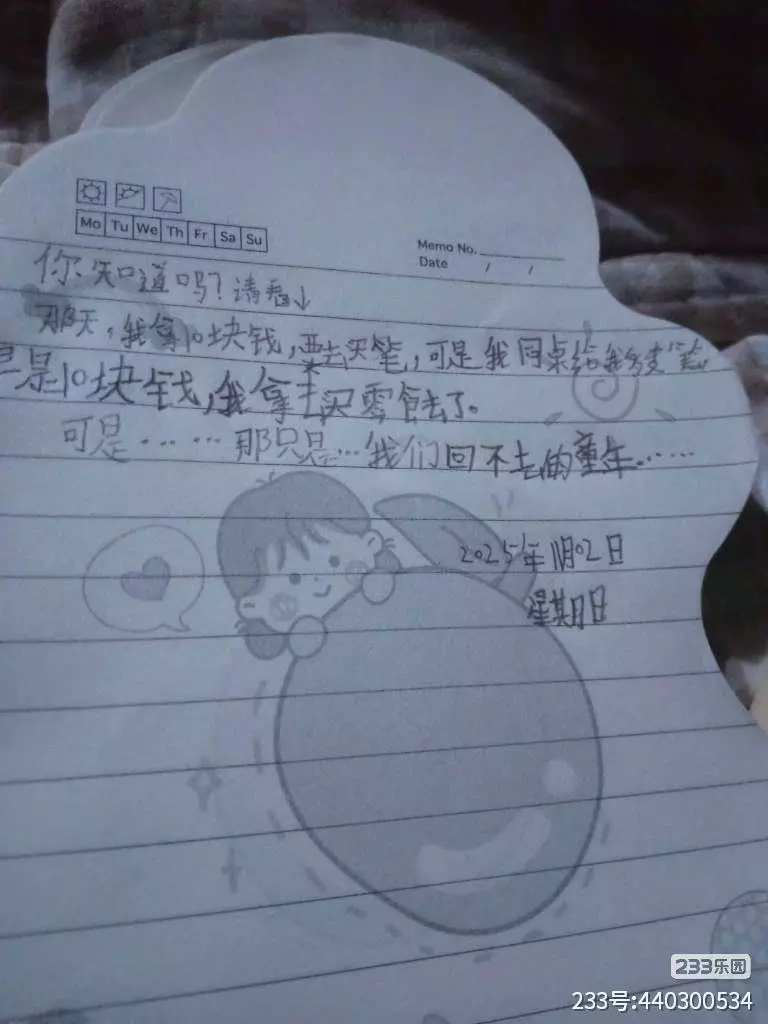 Mo Tu We Th Fr Sa Su
Memo No.
Date / /
你知道吗?请看↓
那天,我拿10块钱,要去买笔,可是我同桌给我多支笔,
是10块钱,我拿去买零食去了。
可是……那只是…我们回不去的童年……
2025年11月02日
星期日
233乐园
233号:440300534